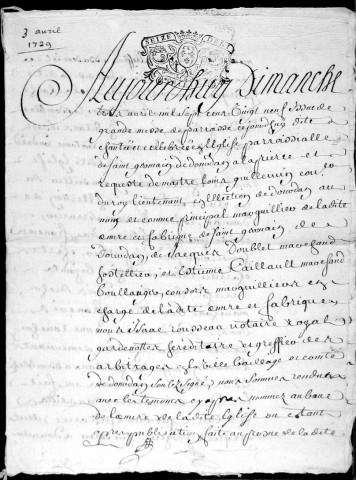 3 avril
1729
SEIZE DEN
Aujourdhuy Dimanche
trois avril mil Sept cens Vingt neuf issue de
grande messe de parroisse cejourdhuy dite
chantée et celebrée en L'Eglise parroissialle
de saint germain de dourdan a la prière et
requeste de maitre Louis guillemin con.er du
du roy lieutenant en l'Election de dourdan au
nom et comme principal marguillier de ladite
œuvre et fabrique de saint germain de
dourdan, de Jacques Doublet marchand
hostellier, et Estienne Caillault marchand
Boullanger, consors marguilliers en
charge de ladite œuvre et fabrique,
nous Isaac rousseau notaire royal
gardenotte hereditaire et greffier des
arbitrages es villes bailliage et comté
de dourdan soubz signé, nous sommes rendu
avec les temoins cy apres nommez au banc
de l'œuvre de ladite Eglise ou estant
apres publication faite au prosne de ladite